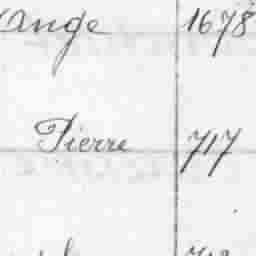 Ange 1678
Pierre 717